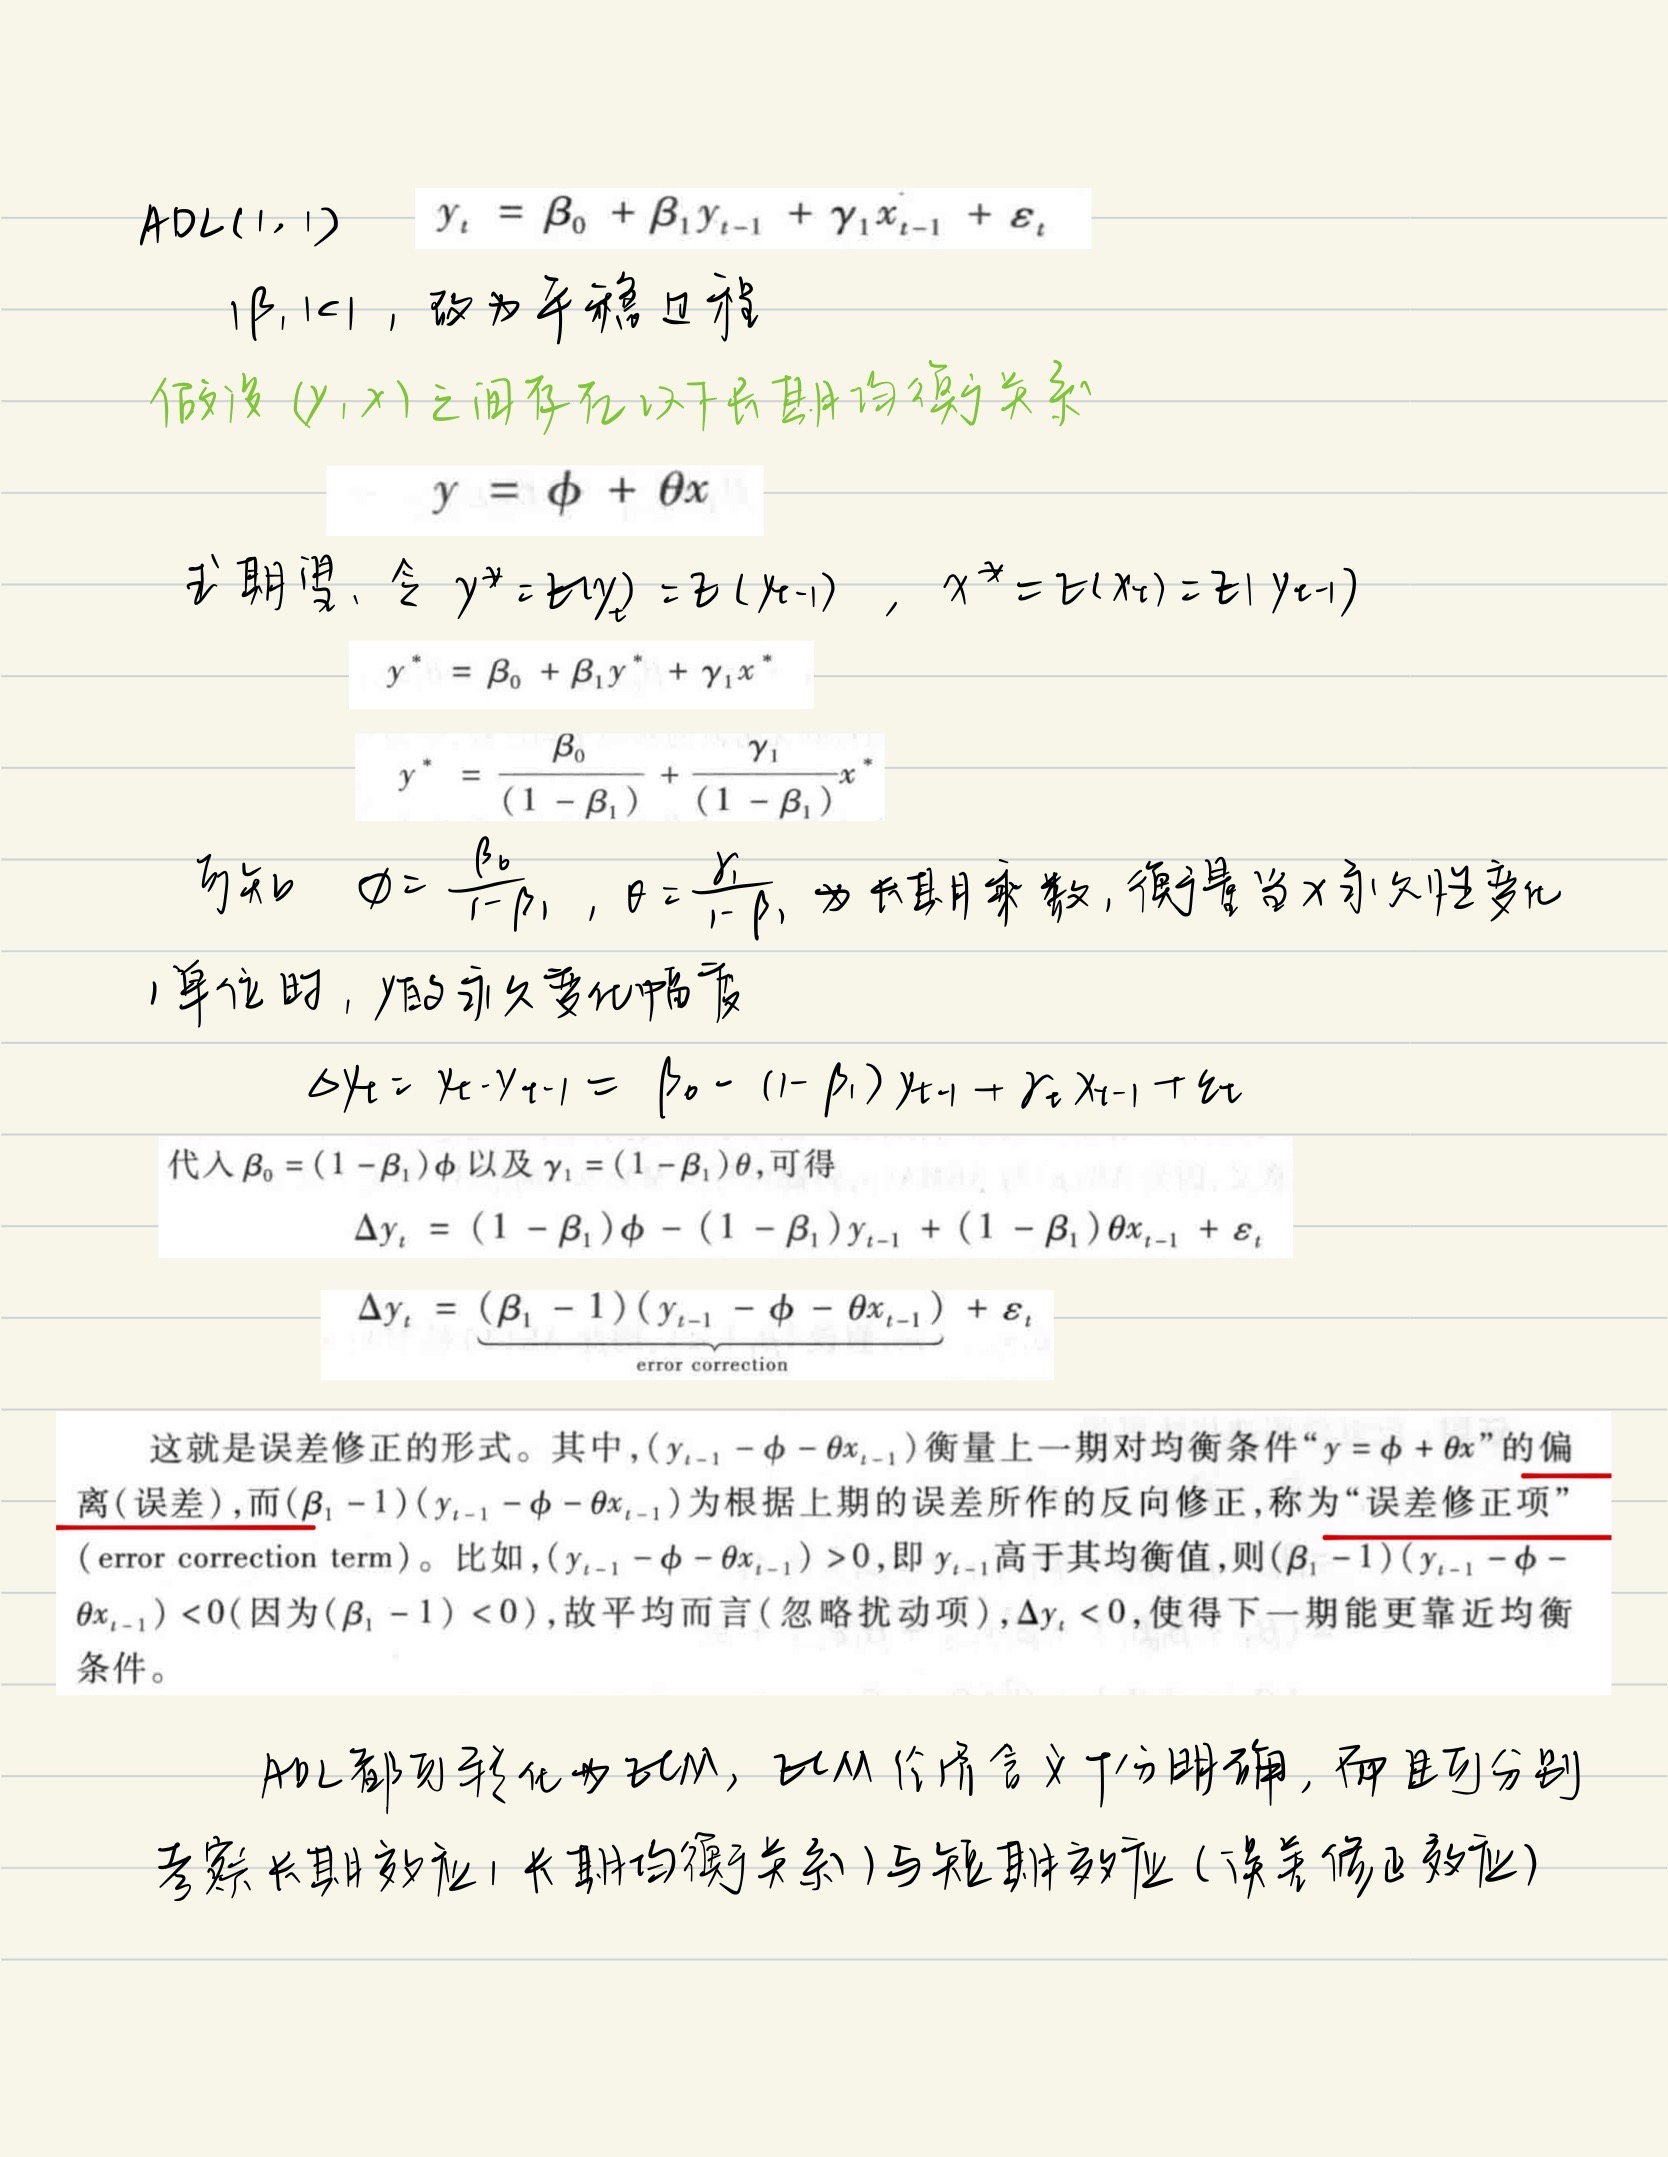 ADL(1,1) yₜ = β₀ + β₁yₜ₋₁ + γ₁xₜ₋₁ + εₜ
|β₁|<1, 故为平稳过程
假设 (y,x) 之间存在以下长期均衡关系
y = ϕ + θx
求期望、令 y* = E(yₜ) = E(yₜ₋₁) , x* = E(xₜ) = E(yₜ₋₁)
y* = β₀ + β₁y* + γ₁x*
y* = β₀/(1 − β₁) + γ₁/(1 − β₁) x*
可知 ϕ = β₀/(1-β₁) , θ = γ₁/(1-β₁) 为长期乘数, 衡量当x永久性变化
1单位时, y的永久变化幅度
Δyₜ = yₜ - yₜ₋₁ = β₀ - (1-β₁)yₜ₋₁ + γₜxₜ₋₁ + εₜ
代入 β₀ = (1 − β₁)ϕ 以及 γ₁ = (1 − β₁)θ,可得
Δyₜ = (1 − β₁)ϕ − (1 − β₁)yₜ₋₁ + (1 − β₁)θxₜ₋₁ + εₜ
Δyₜ = (β₁ − 1)(yₜ₋₁ − ϕ − θxₜ₋₁) + εₜ
error correction
这就是误差修正的形式。其中,(yₜ₋₁ − ϕ − θxₜ₋₁)衡量上一期对均衡条件“y = ϕ + θx”的偏
离(误差),而(β₁ − 1)(yₜ₋₁ − ϕ − θxₜ₋₁)为根据上期的误差所作的反向修正,称为“误差修正项”
(error correction term)。比如,(yₜ₋₁ − ϕ − θxₜ₋₁) >0,即 yₜ₋₁高于其均衡值,则(β₁ − 1)(yₜ₋₁ − ϕ −
θxₜ₋₁) <0(因为(β₁ − 1) <0),故平均而言(忽略扰动项),Δyₜ <0,使得下一期能更靠近均衡
条件。
ADL都可转化为ECM, ECM经济含义十分明确, 而且可分别
考察长期效应(长期均衡关系)与短期效应(误差修正效应)